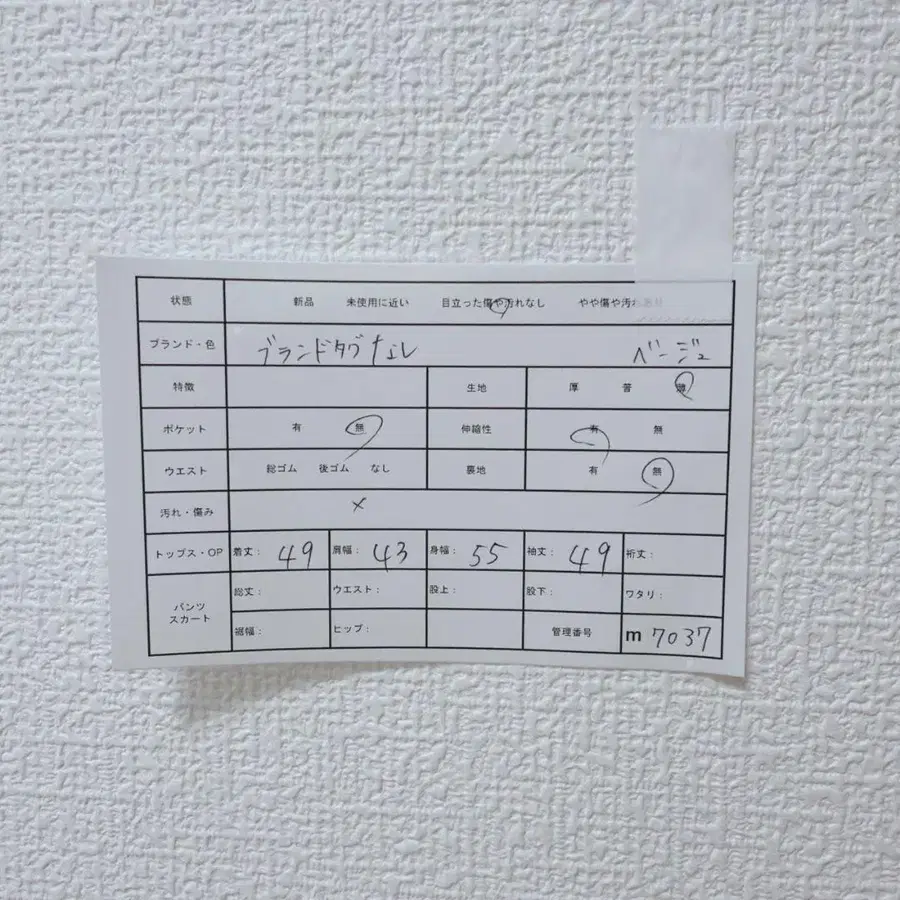 状態 新品 未使用に近い 目立った傷や汚れなし やや傷や汚れあり
ブランド・色 ブランドタグなし ベージュ
特徴 生地 厚 普 薄
ポケット 有 無 伸縮性 有 無
ウエスト 総ゴム 後ゴム なし 裏地 有 無
汚れ・傷み ×
トップス・OP 着丈: 49 肩幅: 43 身幅: 55 袖丈: 49 裄丈:
パンツ スカート 総丈: ウエスト: 股上: 股下: ワタリ:
裾幅: ヒップ: 管理番号 m 7037